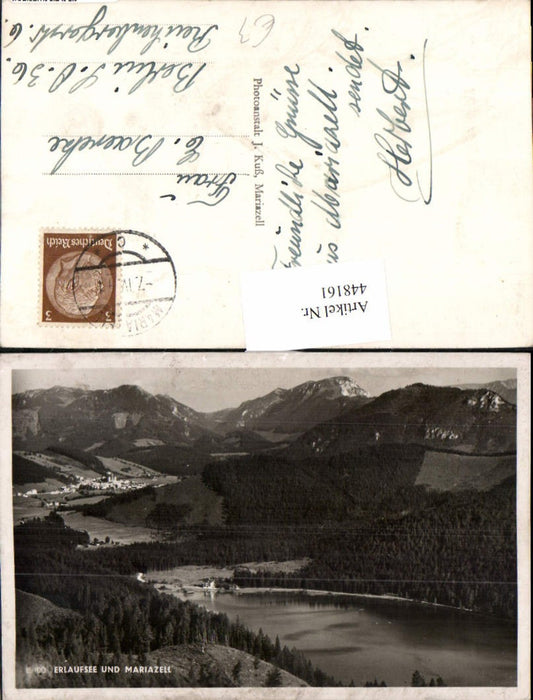 Freundliche Grüsse
aus Mariazell
sendet
Herbert.
Photoanstalt J. Kuß, Mariazell
Frau
E. Baencke
Berlin S.O. 36.
Reichenbergerstr. 6
63
Deutsches Reich
3 3
MARIA
-7.IV
Artikel Nr.
448161
ERLAUFSEE UND MARIAZELL